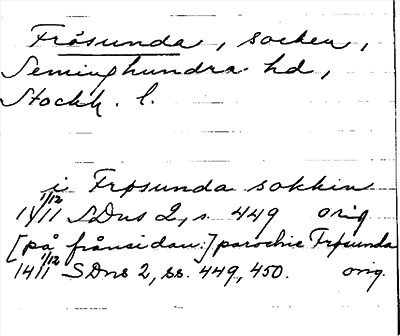 Frösunda, socken,
Seminghundra hd,
Stockh. l.
i Frøsunda sokkin
1/12 1411 SDns 2, s. 449 orig
[på frånsidan:] parochie Frøsunda
1/12 1411 SDns 2, ss. 449, 450. orig.